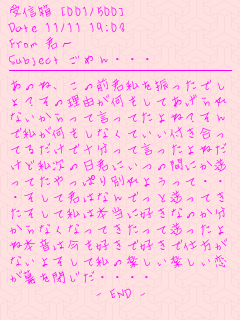 受信箱 [001/500]
Date 11/11 19:03
From 君～
Subject ごめん・・・
あのね、この前君私を振ったでし
ょ?その理由が何をしてあげられ
ないからって言ってたよね?でもん
で私が何をしなくていい付き合っ
てるだけで十分って言ったよねだ
けど私次の日君にいつの間にか逃
ってたやっぱり別れようって・・
・そして君はなんでっと迷ってき
たそして私は本当に好きなのか分
からなくなってきたって迷ったよ
ね本音は今も好きで好きで仕方が
ないよそして私の楽しい楽しい恋
が幕を閉じだ・・・・
- END -